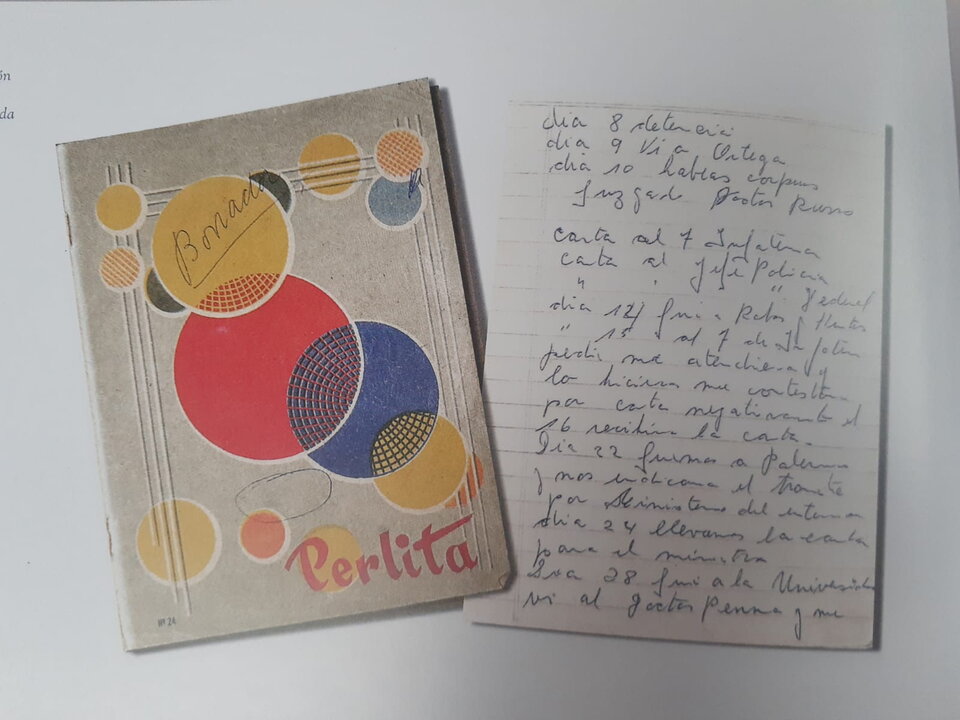 ón
da
Perlita
Nº 24
dia 8 detencio
dia 9 Vi a Ortega
dia 10 habias corpus
Juzgado Doctor Russo
carta al 7 Infateria
carta al Jefe Policia
" " " Federal
dia 12 fui a
" 15 al 7 de
pedi me atendiera y
lo hicieron me contestaron
por carta negativamente el
16 recibim la carta.
Dia 22 fuimos a Palermo
y nos indicaron el tramite
por Ministerio del interior
dia 24 llevamos la carta
para el ministro
Dia 28 fui a la Universidad
vi al doctor Penna y me